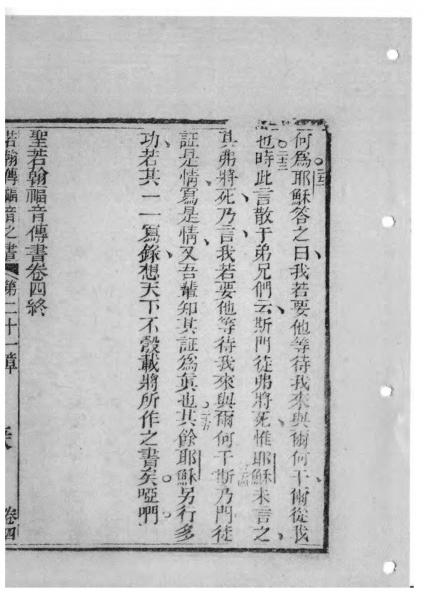 何為耶穌答之曰我若要他等待我來與爾何干爾從我
也時此言散于弟兄們云斯門徒弗將死惟耶穌未言之
其弗將死乃言我若要他等待我來與爾何干斯乃門徒
証是情寫是情又吾輩知其証為真也其餘耶穌另行多
功若其一一寫錄想天下不彀載將所作之書矣啞們
聖若翰福音傳書卷四終
若翰傳福音之書 第二十一章 卷四